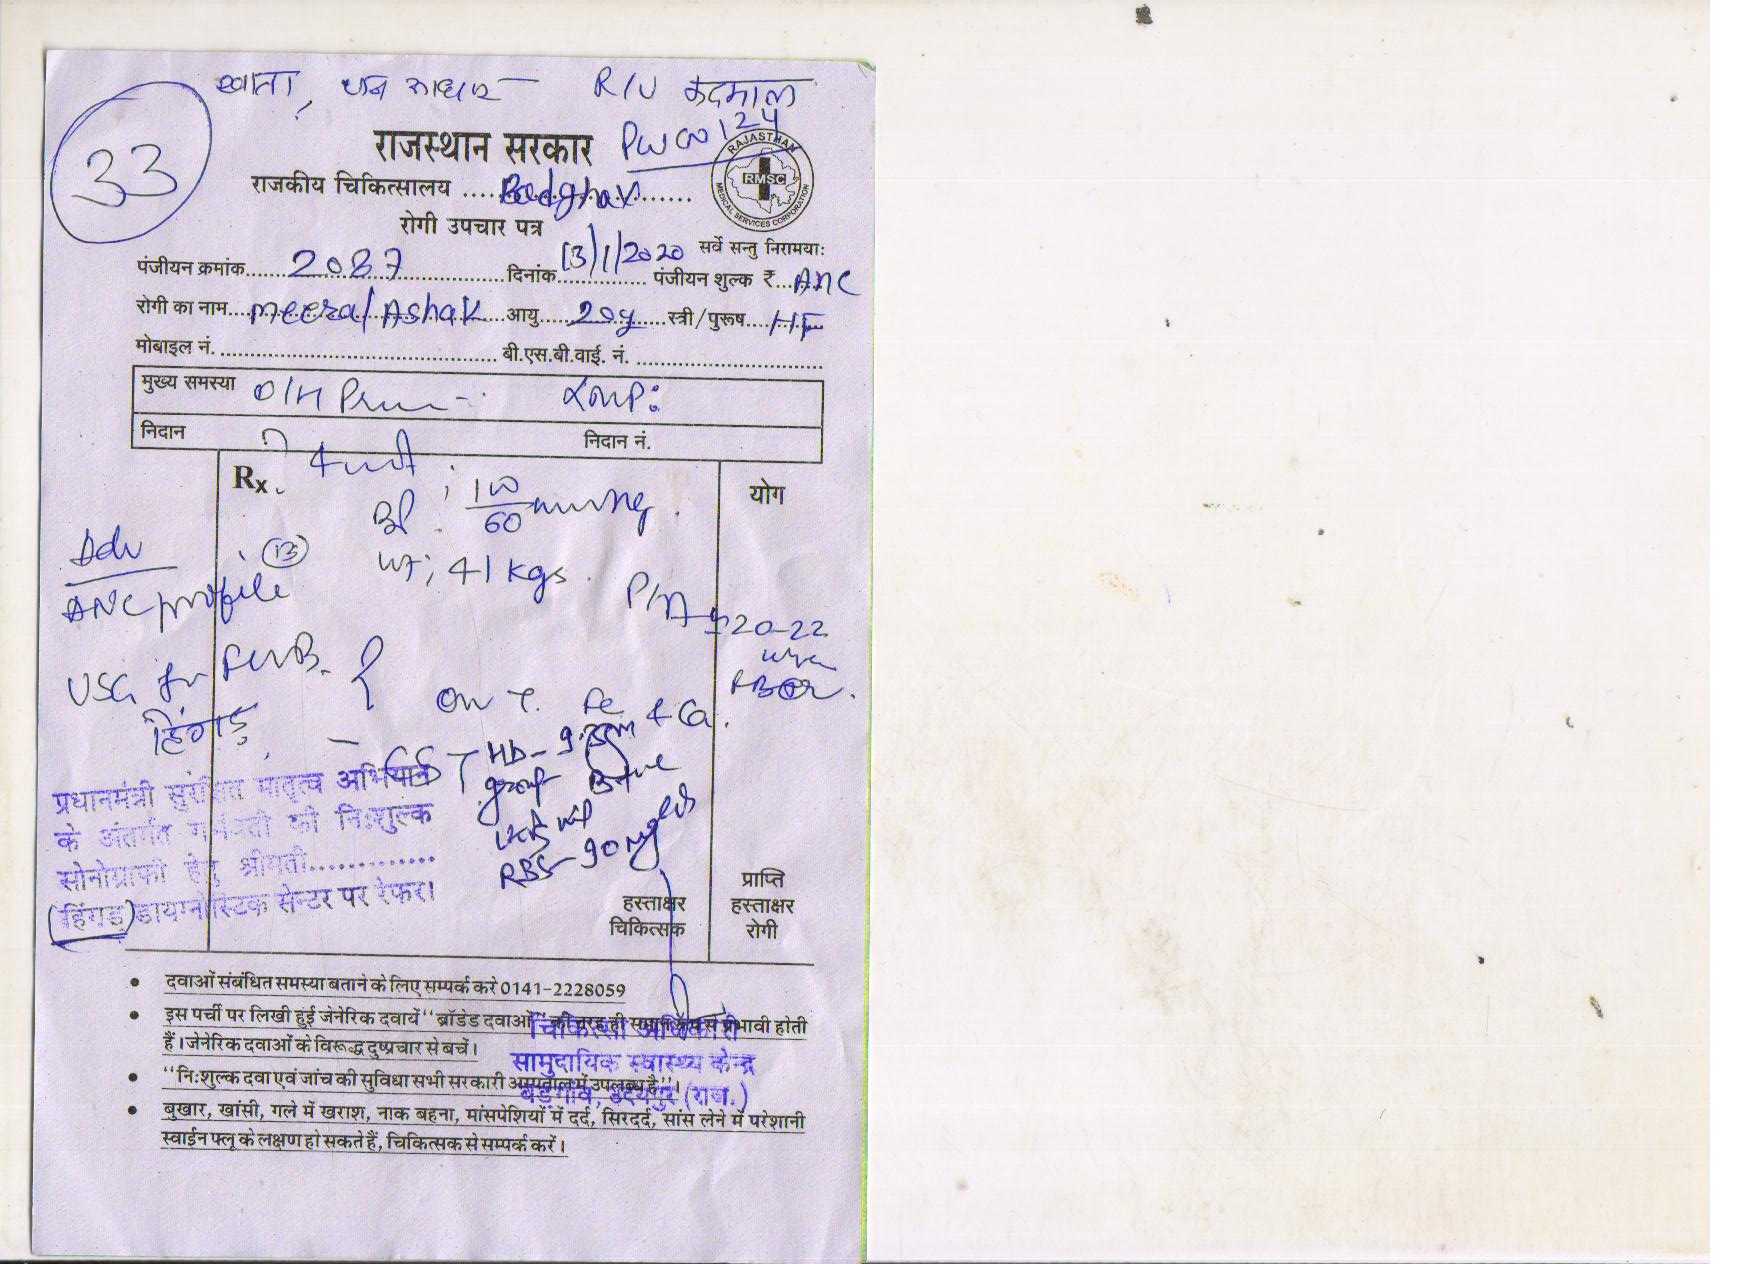 33
खाता, R/O कदमाल
राजस्थान सरकार
124
RAJASTHAN MEDICAL SERVICES CORPORATION
RMSC
राजकीय चिकित्सालय ....Badgaon.......
रोगी उपचार पत्र
सर्वे सन्तु निरामयाः
पंजीयन क्रमांक....2087....दिनांक 13/1/2020 पंजीयन शुल्क ₹...ANC
रोगी का नाम....Meera/Ashok....आयु....20y....स्त्री/पुरूष....HF
मोबाइल नं. .......... बी.एस.बी.वाई. नं. ..........
मुख्य समस्या O/H LMP:
निदान निदान नं.
Rx योग
BP: 100/60 mmHg.
Adv
wt; 41 kgs.
ANC profile
P/A 20-22
USG for FWB.
हिंगड़
on T. Fe & Ca.
HB- 9.
group B+ve
RBS- 90 mg
प्रधानमंत्री सुरक्षित मातृत्व अभियान
के अंतर्गत गर्भवती की नि:शुल्क
सोनोग्राफी हेतु श्रीमती.............
(हिंगड़) डायग्नोस्टिक सेन्टर पर रेफर।
हस्ताक्षर
चिकित्सक
प्राप्ति
हस्ताक्षर
रोगी
• दवाओं संबंधित समस्या बताने के लिए सम्पर्क करे 0141-2228059
• इस पर्ची पर लिखी हुई जेनेरिक दवायें "ब्रॉडेड दवाओं" की तरह ही समान रूप से प्रभावी होती
हैं। जेनेरिक दवाओं के विरूद्ध दुष्प्रचार से बचें।
• "नि:शुल्क दवा एवं जांच की सुविधा सभी सरकारी अस्पताल में उपलब्ध है"।
• बुखार, खांसी, गले में खराश, नाक बहना, मांसपेशियों में दर्द, सिरदर्द, सांस लेने में परेशानी
स्वाईन फ्लू के लक्षण हो सकते हैं, चिकित्सक से सम्पर्क करें।
चिकित्सा अधिकारी
सामुदायिक स्वास्थ्य केन्द्र
बड़गांव, उदयपुर (राज.)